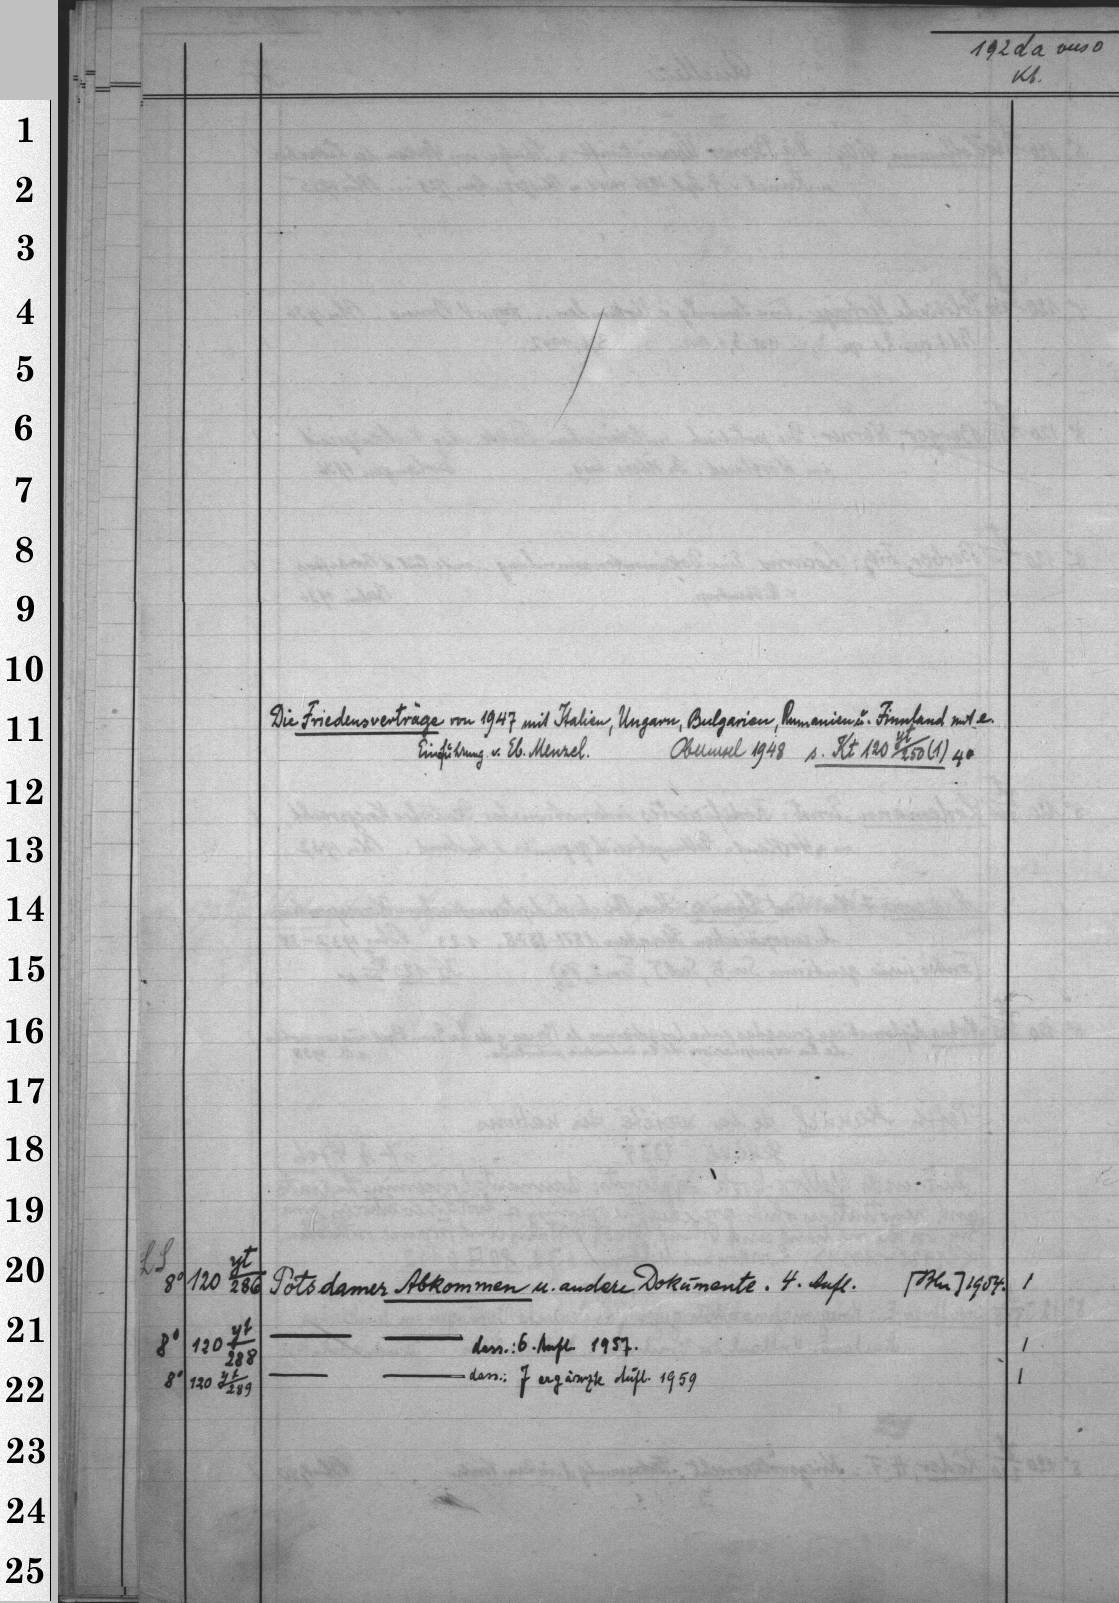 192da
Kt.
1
2
3
4
5
6
7
8
9
10
Die Friedensverträge von 1947 mit Italien, Ungarn, Bulgarien, Rumanien u. Finnland mit e.
11
Einführung v. Eb. Menzel. Oberursel 1948 s. Kt 120 yt/250(1) 4°
12
13
14
15
16
17
18
19
LS
20
8° 120 yt/286 Potsdamer Abkommen u. andere Dokumente. 4. Aufl. [Bln] 1954. 1
21
8° 120 yt/288 dass.: 6. Aufl. 1957. 1
22
8° 120 yt/289 dass.: 7 ergänzte Aufl. 1959 1
23
24
25